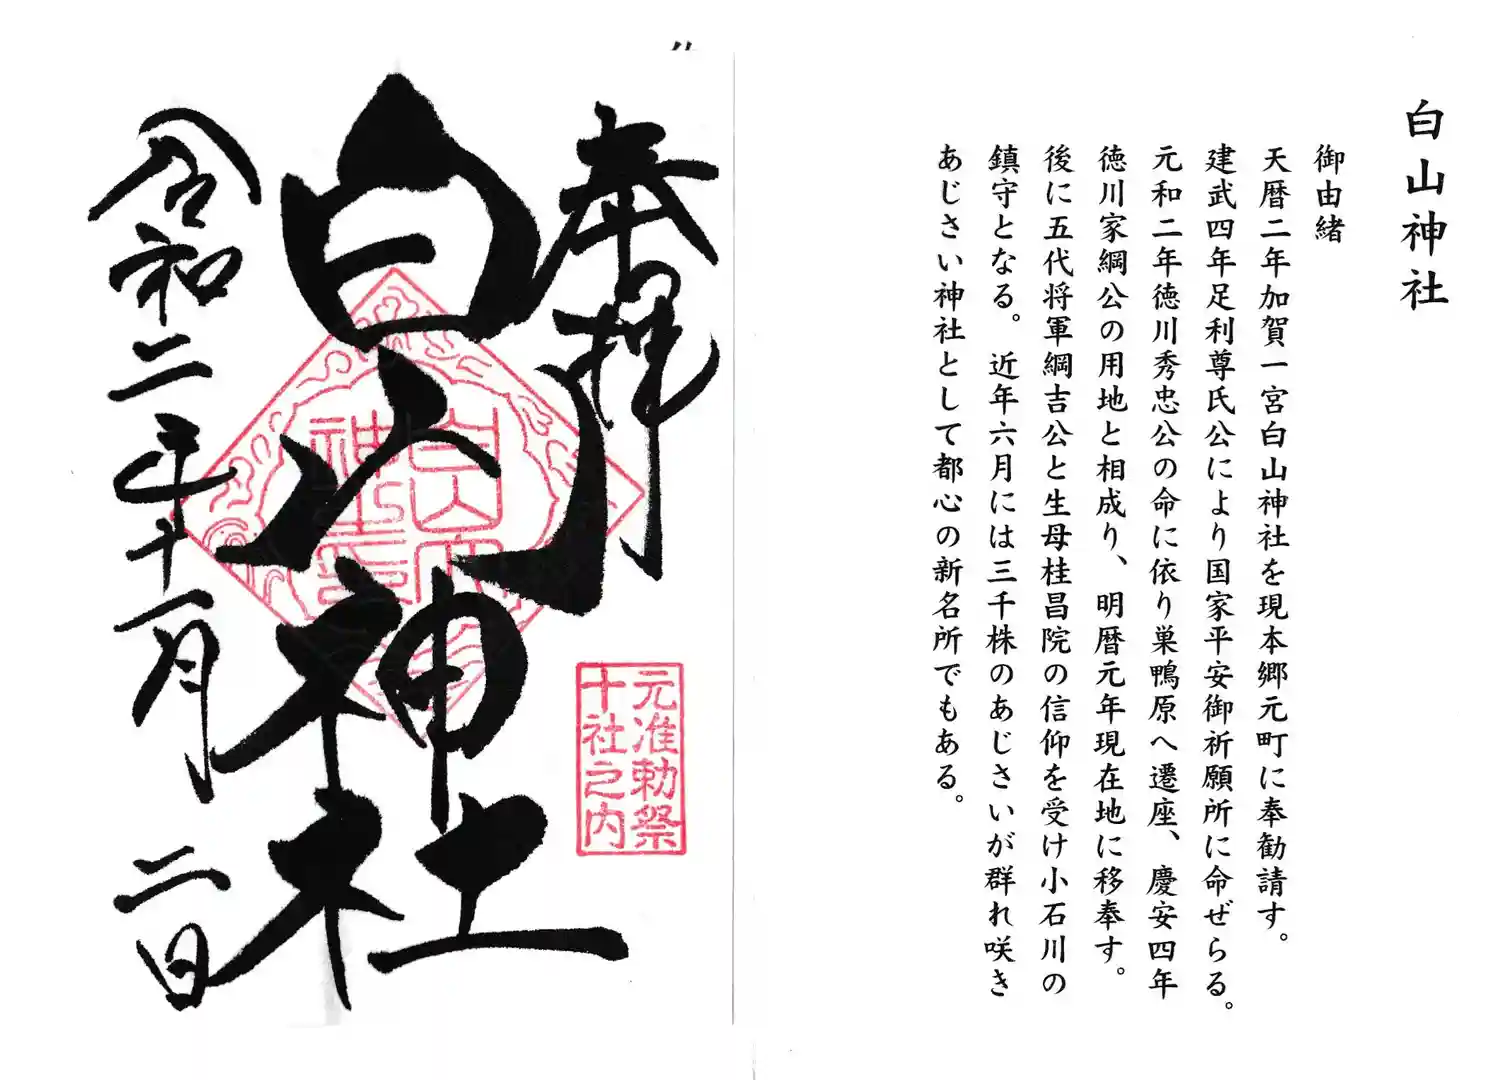 白山神社
御由緒
天暦二年加賀一宮白山神社を現本郷元町に奉勧請す。
建武四年足利尊氏公により国家平安御祈願所に命ぜらる。
元和二年徳川秀忠公の命に依り巣鴨原へ遷座、慶安四年
徳川家綱公の用地と相成り、明暦元年現在地に移奉す。
後に五代将軍綱吉公と生母桂昌院の信仰を受け小石川の
鎮守となる。近年六月には三千株のあじさいが群れ咲き
あじさい神社として都心の新名所でもある。
奉拝
元准勅祭
十社之内
白山神社
令和二年十一月二日